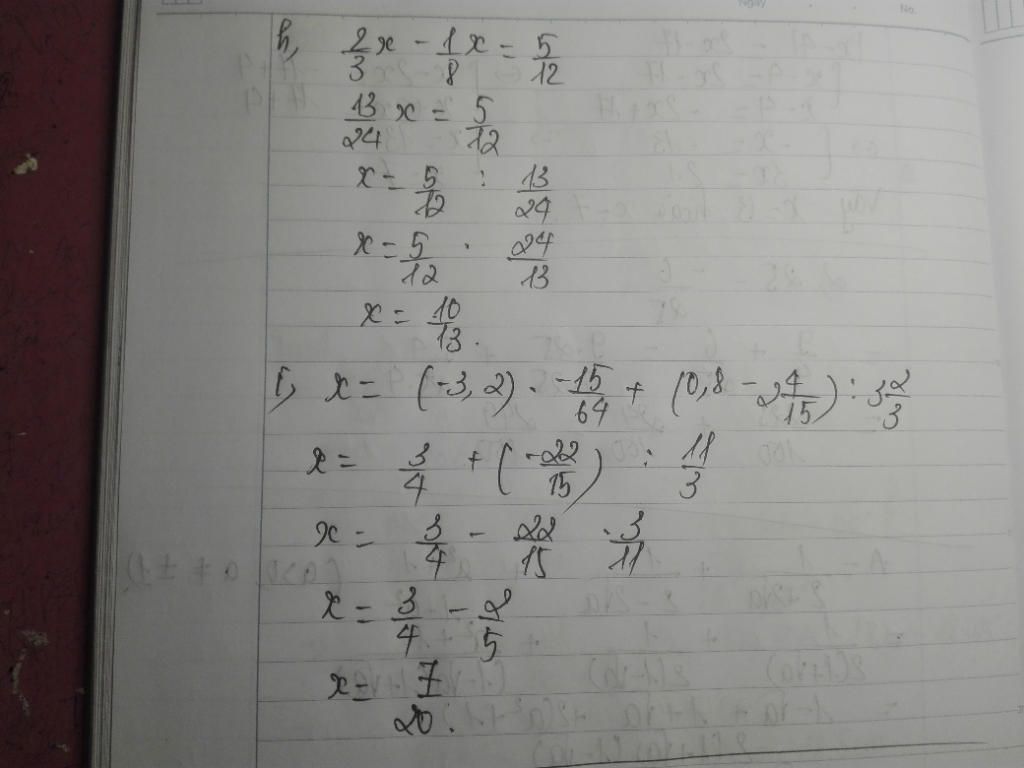 h, 2/3 x - 1/8 x = 5/12
13/24 x = 5/12
x = 5/12 : 13/24
x = 5/12 . 24/13
x = 10/13.
i, x = (-3,2) . -15/64 + (0,8 - 2 4/15) : 3 2/3
x = 3/4 + (-22/15) : 11/3
x = 3/4 - 22/15 . 3/11
x = 3/4 - 2/5
x = 7/20.